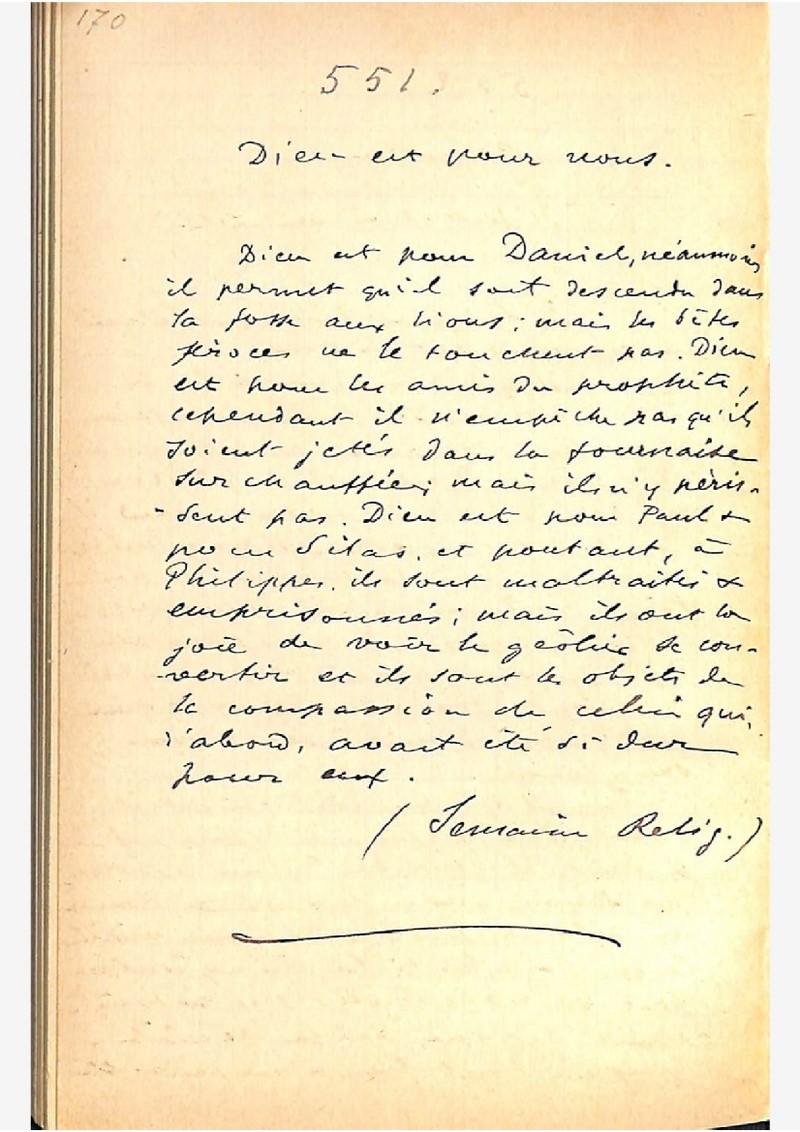 170
551.
Dieu est pour nous.
Dieu est pour Daniel, néanmoins
il permet qu'il soit descendu dans
la fosse aux lions ; mais les bêtes
féroces ne le touchent pas. Dieu
est pour les amis du prophète,
cependant il n'empêche pas qu'ils
soient jetés dans la fournaise
surchauffée ; mais ils n'y péris-
-sent pas. Dieu est pour Paul &
pour Silas, et pourtant, à
Philippes, ils sont maltraités &
emprisonnés ; mais ils ont la
joie de voir le geôlier se con-
-vertir et ils sont les objets de
la compassion de celui qui,
d'abord, avait été si dur
pour eux.
(Semaine Relig.)